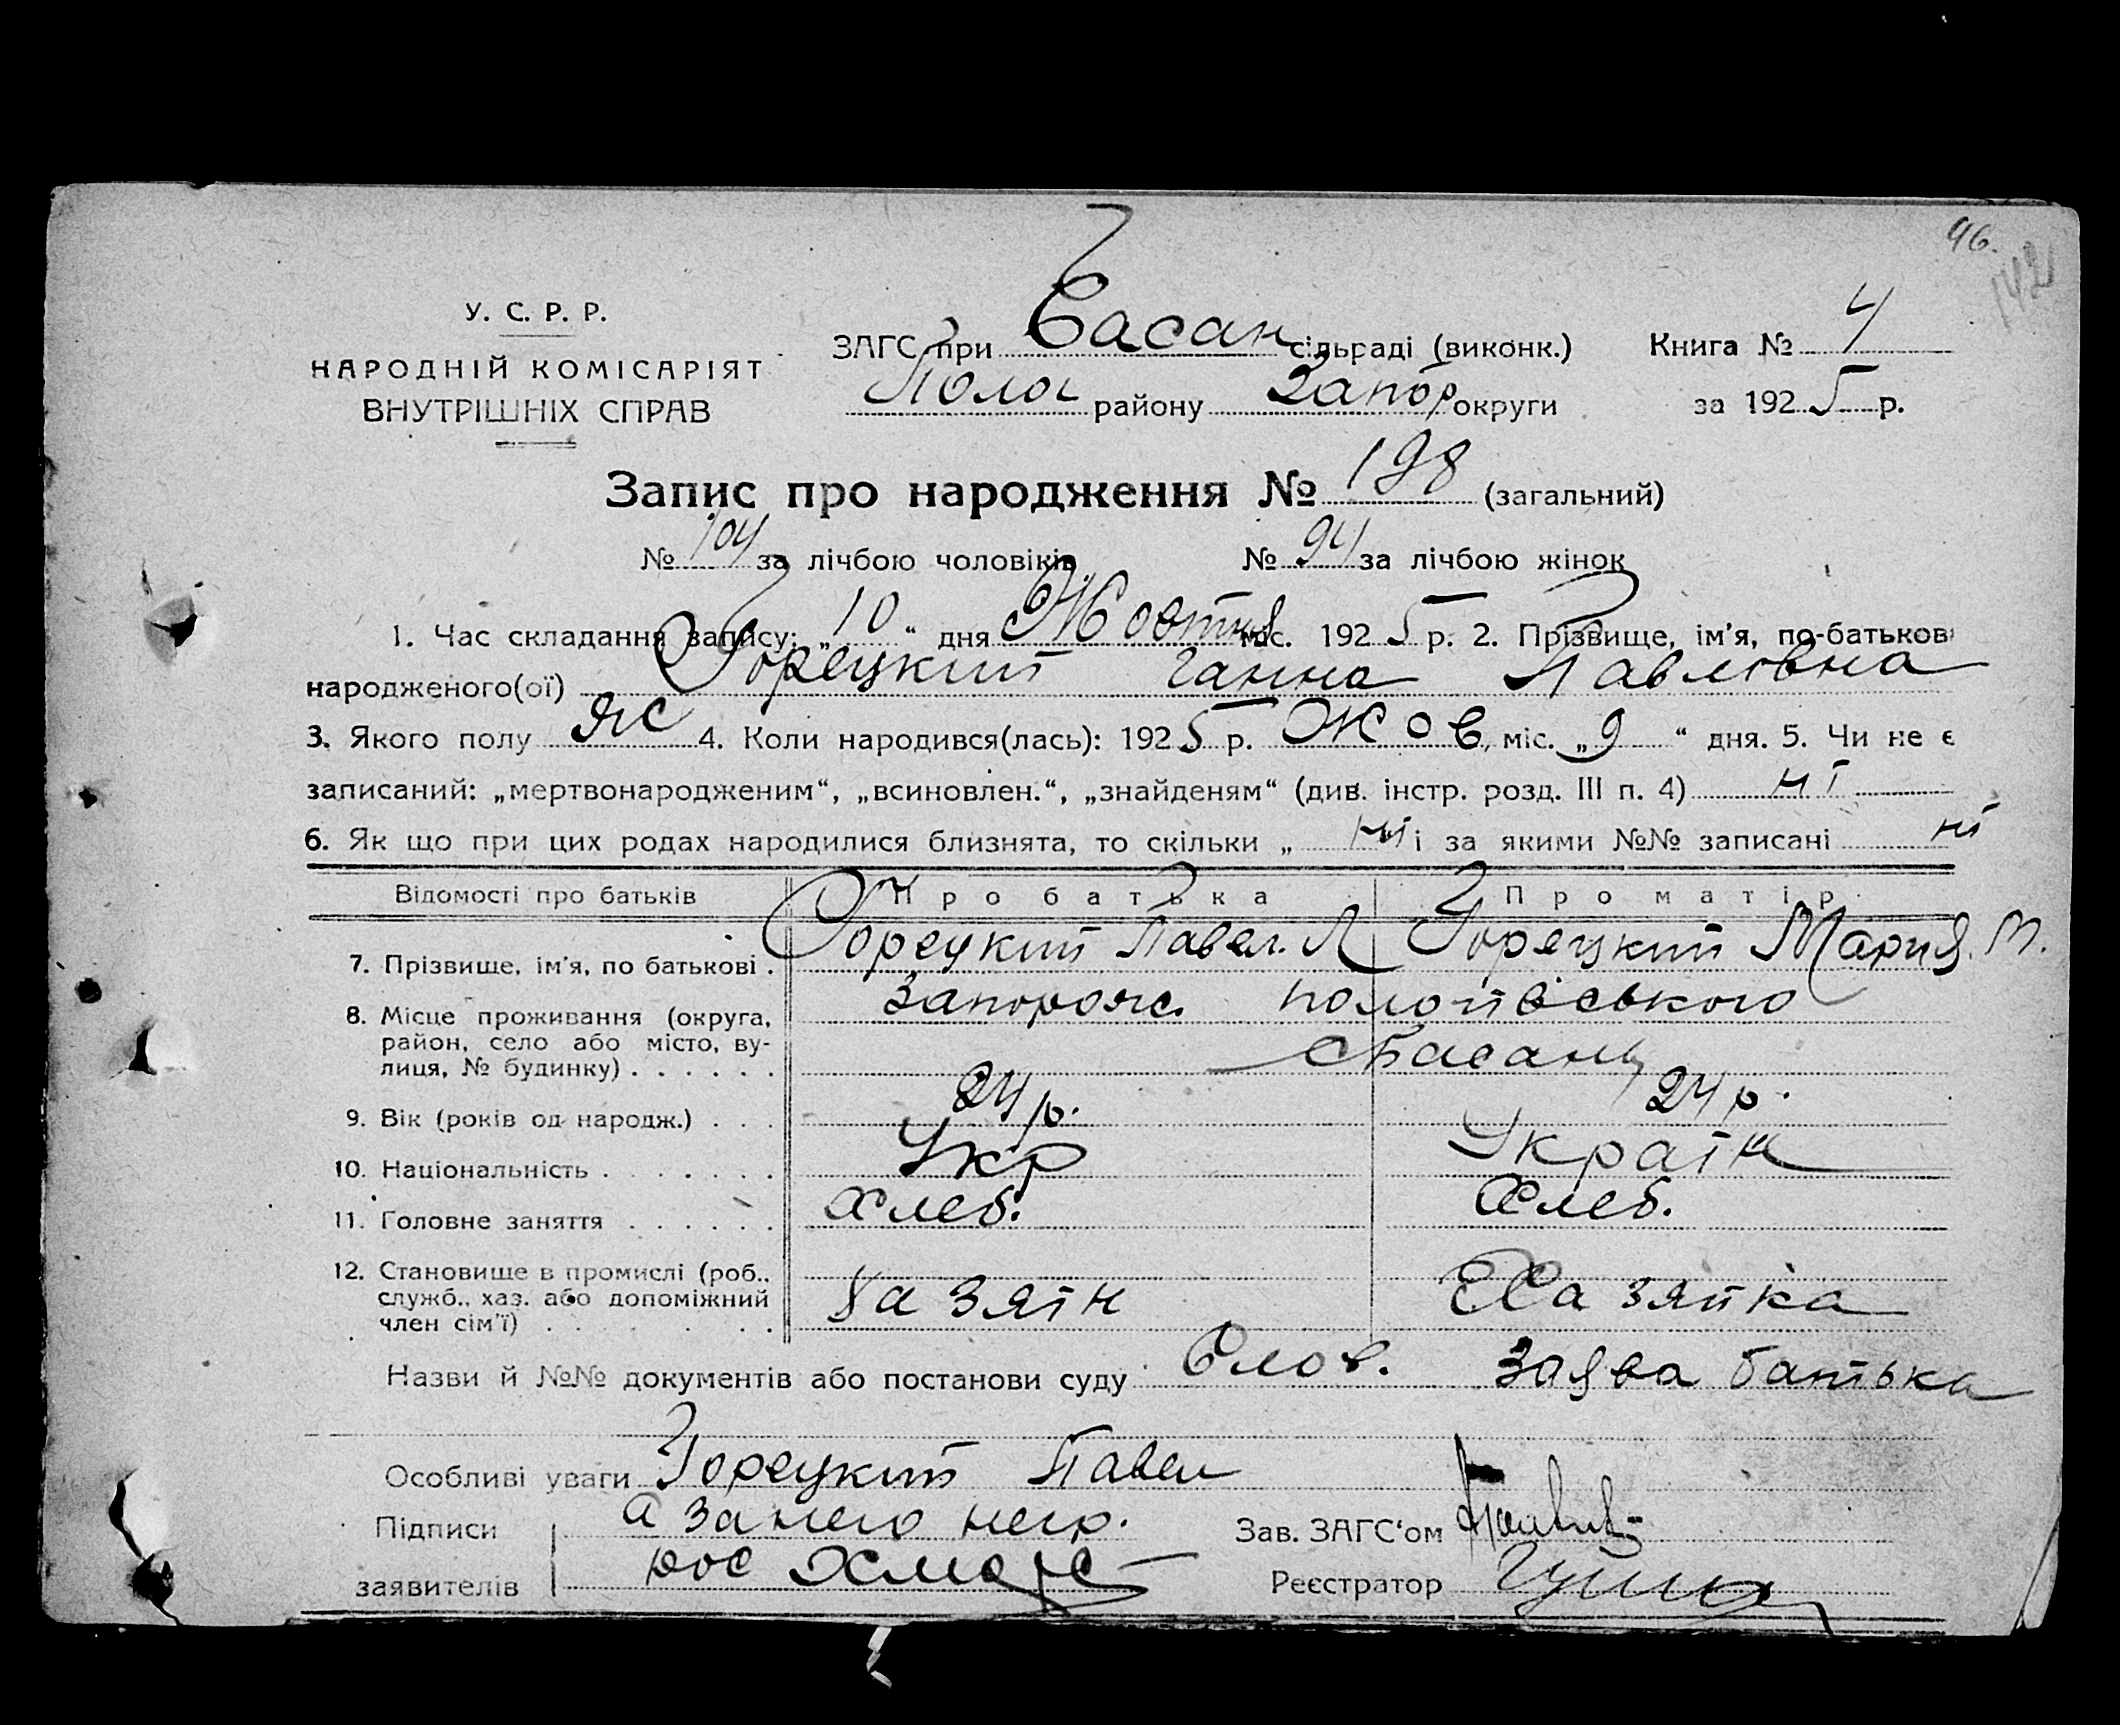 96.
142
У. С. Р. Р.
НАРОДНІЙ КОМІСАРІЯТ
ВНУТРІШНІХ СПРАВ
ЗАГС при Басан сільраді (виконк.) Книга № 4
Полог району Запор округи за 192 5 р.
Запис про народження № 198 (загальний)
№ 104 за лічбою чоловіків № 94 за лічбою жінок
1. Час складання запису: „ 10 “ дня Жовтня міс. 192 5 р. 2. Прізвище, ім'я, по-батькові
народженого(ої) Горецкий Ганна Павловна
3. Якого полу ж 4. Коли народився(лась): 192 5 р. Жов, міс. „ 9 “ дня. 5. Чи не є
записаний: „мертвонародженим“, „всиновлен.“, „знайденям“ (див. інстр. розд. III п. 4) ні
6. Як що при цих родах народилися близнята, то скільки „ ні і за якими №№ записані ні
Відомості про батьків Про батька Про матір
7. Прізвище, ім'я, по батькові . Горецкий Павел. Л Горецкий Мария. М.
8. Місце проживання (округа, Запорож. пологівського
район, село або місто, ву-
лиця, № будинку) . . . . . . с Басань
9. Вік (років од народж.) . . . 24 р. 24 р.
10. Національність . . . . . . . Укр Україн
11. Головне заняття . . . . . . Хлеб. Хлеб.
12. Становище в промислі (роб.,
служб., хаз. або допоміжний Хазяїн Хазяйка
член сім'ї) . . . . . .
Назви й №№ документів або постанови суду Слов. Заява батька
Особливі уваги Горецкий Павел
Підписи а за него негр. Зав. ЗАГС'ом
заявителів Реєстратор